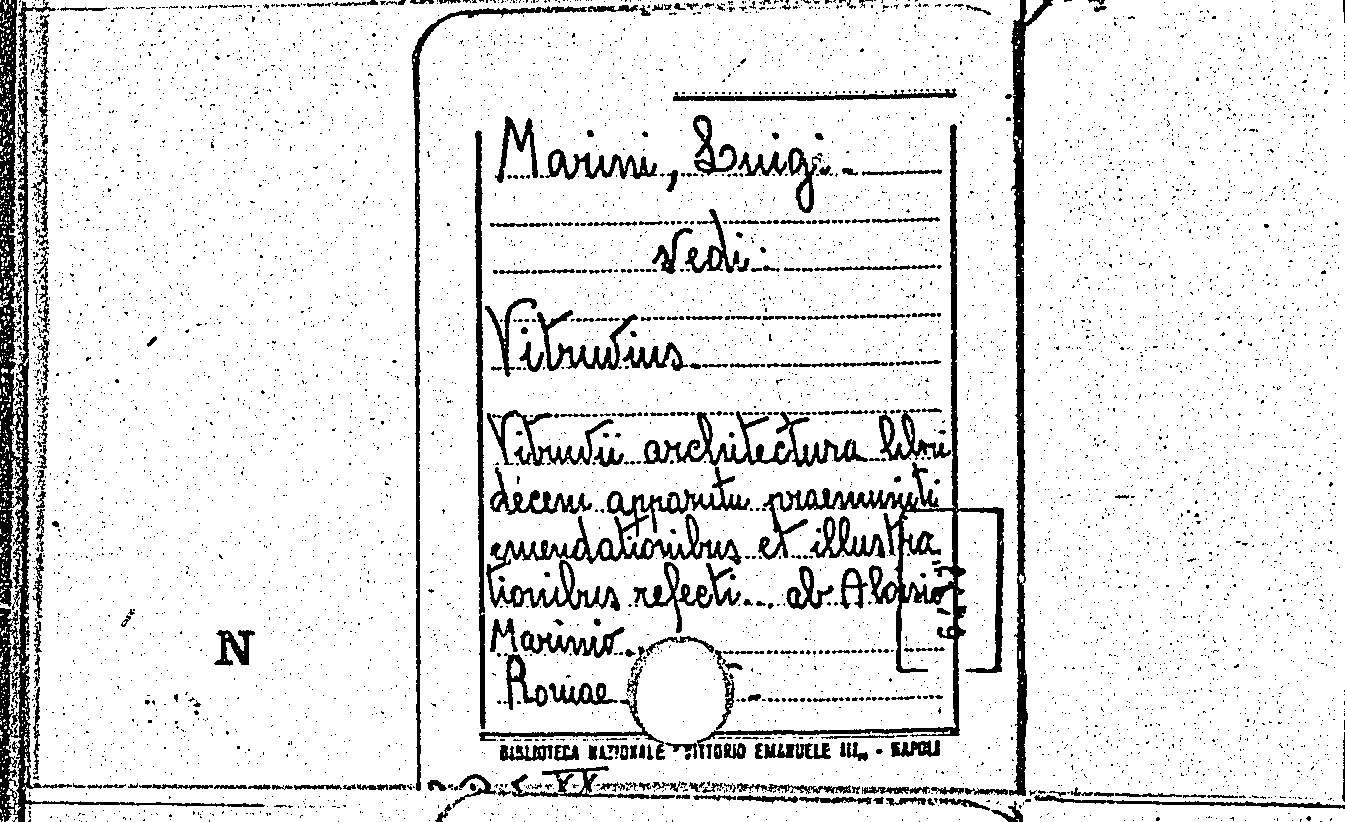 Marini, Luigi.
vedi:
Vitruvius
Vitruvii architectura libri
decem apparatu praemuniti
emendationibus et illustra
tionibus refecti... ab Aloisio
Marinio.
Romae
N
BIBLIOTECA NAZIONALE "VITTORIO EMANUELE III„ - NAPOLI
XX